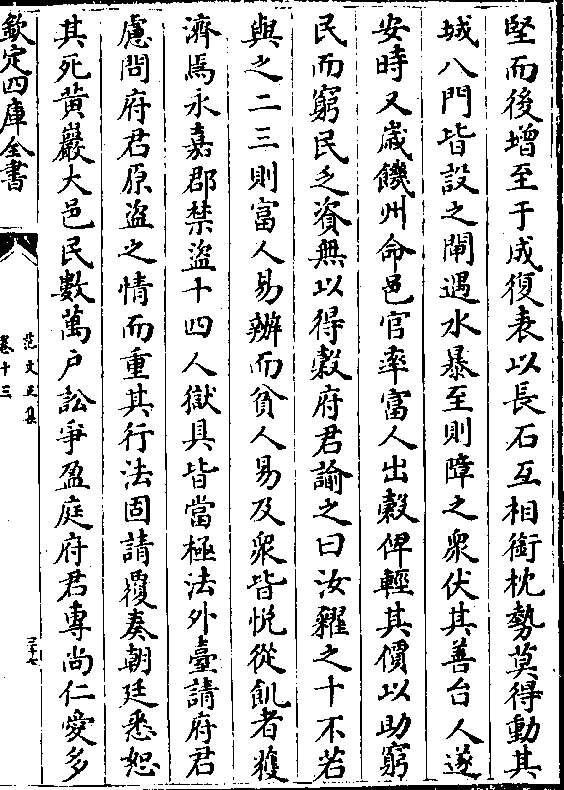 堅而後增至于成復表以長石互相銜枕勢莫得動其
城八門皆設之閘遇水暴至則障之衆伏其善台人遂
安時又歲饑州命邑官率富人出穀俾輕其價以助窮
民而窮民乏資無以得穀府君諭之曰汝糶之十不若
與之二三則富人易辦而貧人易及衆皆悦從飢者獲
濟焉永嘉郡禁盜十四人獄具皆當極法外臺請府君
慮問府君原盜之情而重其行法固請覆奏朝廷悉恕
其死黄巖大邑民數萬户訟爭盈庭府君專尚仁愛多
欽定四庫全書
范文正集
卷十三
三十七